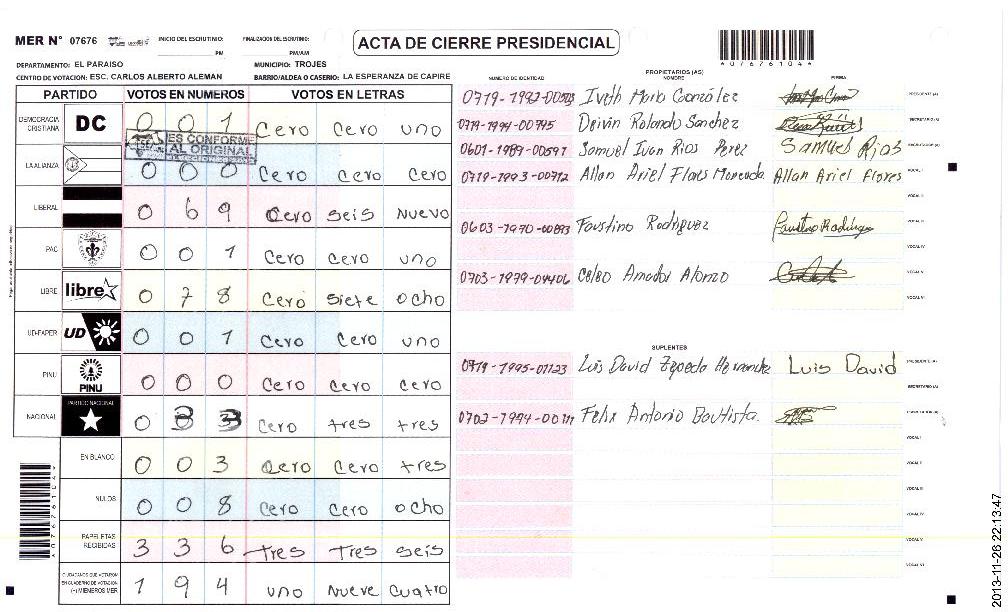 MER N° 07676 INICIO DEL ESCRUTINIO: PM FINALIZACION DEL ESCRUTINIO: PM/AM
ACTA DE CIERRE PRESIDENCIAL
4076761044
DEPARTAMENTO: EL PARAISO MUNICIPIO: TROJES
CENTRO DE VOTACION: ESC. CARLOS ALBERTO ALEMAN BARRIO/ALDEA O CASERIO: LA ESPERANZA DE CAPIRE
PARTIDO VOTOS EN NUMEROS VOTOS EN LETRAS
DEMOCRACIA CRISTIANA DC 0 0 1 cero cero uno
ES CONFORME AL ORIGINAL
LA ALIANZA 0 0 0 cero cero cero
LIBERAL 0 6 9 cero seis nuevo
PAC 0 0 1 cero cero uno
LIBRE libre 0 7 8 cero siete ocho
UD-FAPER UD 0 0 1 cero cero uno
PINU PINU 0 0 0 cero cero cero
NACIONAL PARTIDO NACIONAL 0 3 3 cero tres tres
EN BLANCO 0 0 3 cero cero tres
NULOS 0 0 8 cero cero ocho
PAPELETAS RECIBIDAS 3 3 6 tres tres seis
CIUDADANOS QUE VOTARON EN CUADERNO DE VOTACION (+) MIEMBROS MER 1 9 4 uno nueve cuatro
PROPIETARIOS (AS)
NUMERO DE IDENTIDAD NOMBRE FIRMA
Iveth María González PRESIDENTE (A)
0719-1994-00745 Deivin Rolando Sanchez SECRETARIO (A)
0601-1989-00597 Samuel Ivan Rios Perez Samuel Rios ESCRUTADOR (A)
0719-1993-00712 Allan Ariel Flores Allan Ariel Flores VOCAL I
VOCAL II
0603-1970-00893 Faustino Rodriguez Faustino Rodriguez VOCAL III
VOCAL IV
0703-1979-04406 Celeo Amador Alonzo VOCAL V
VOCAL VI
SUPLENTES
0719-1995-01123 Luis David Zepeda Luis David PRESIDENTE (A)
SECRETARIO (A)
Felix Antonio Bautista ESCRUTADOR (A)
VOCAL I
VOCAL II
VOCAL III
VOCAL IV
VOCAL V
VOCAL VI
4076761044
2013-11-26 22:13:47